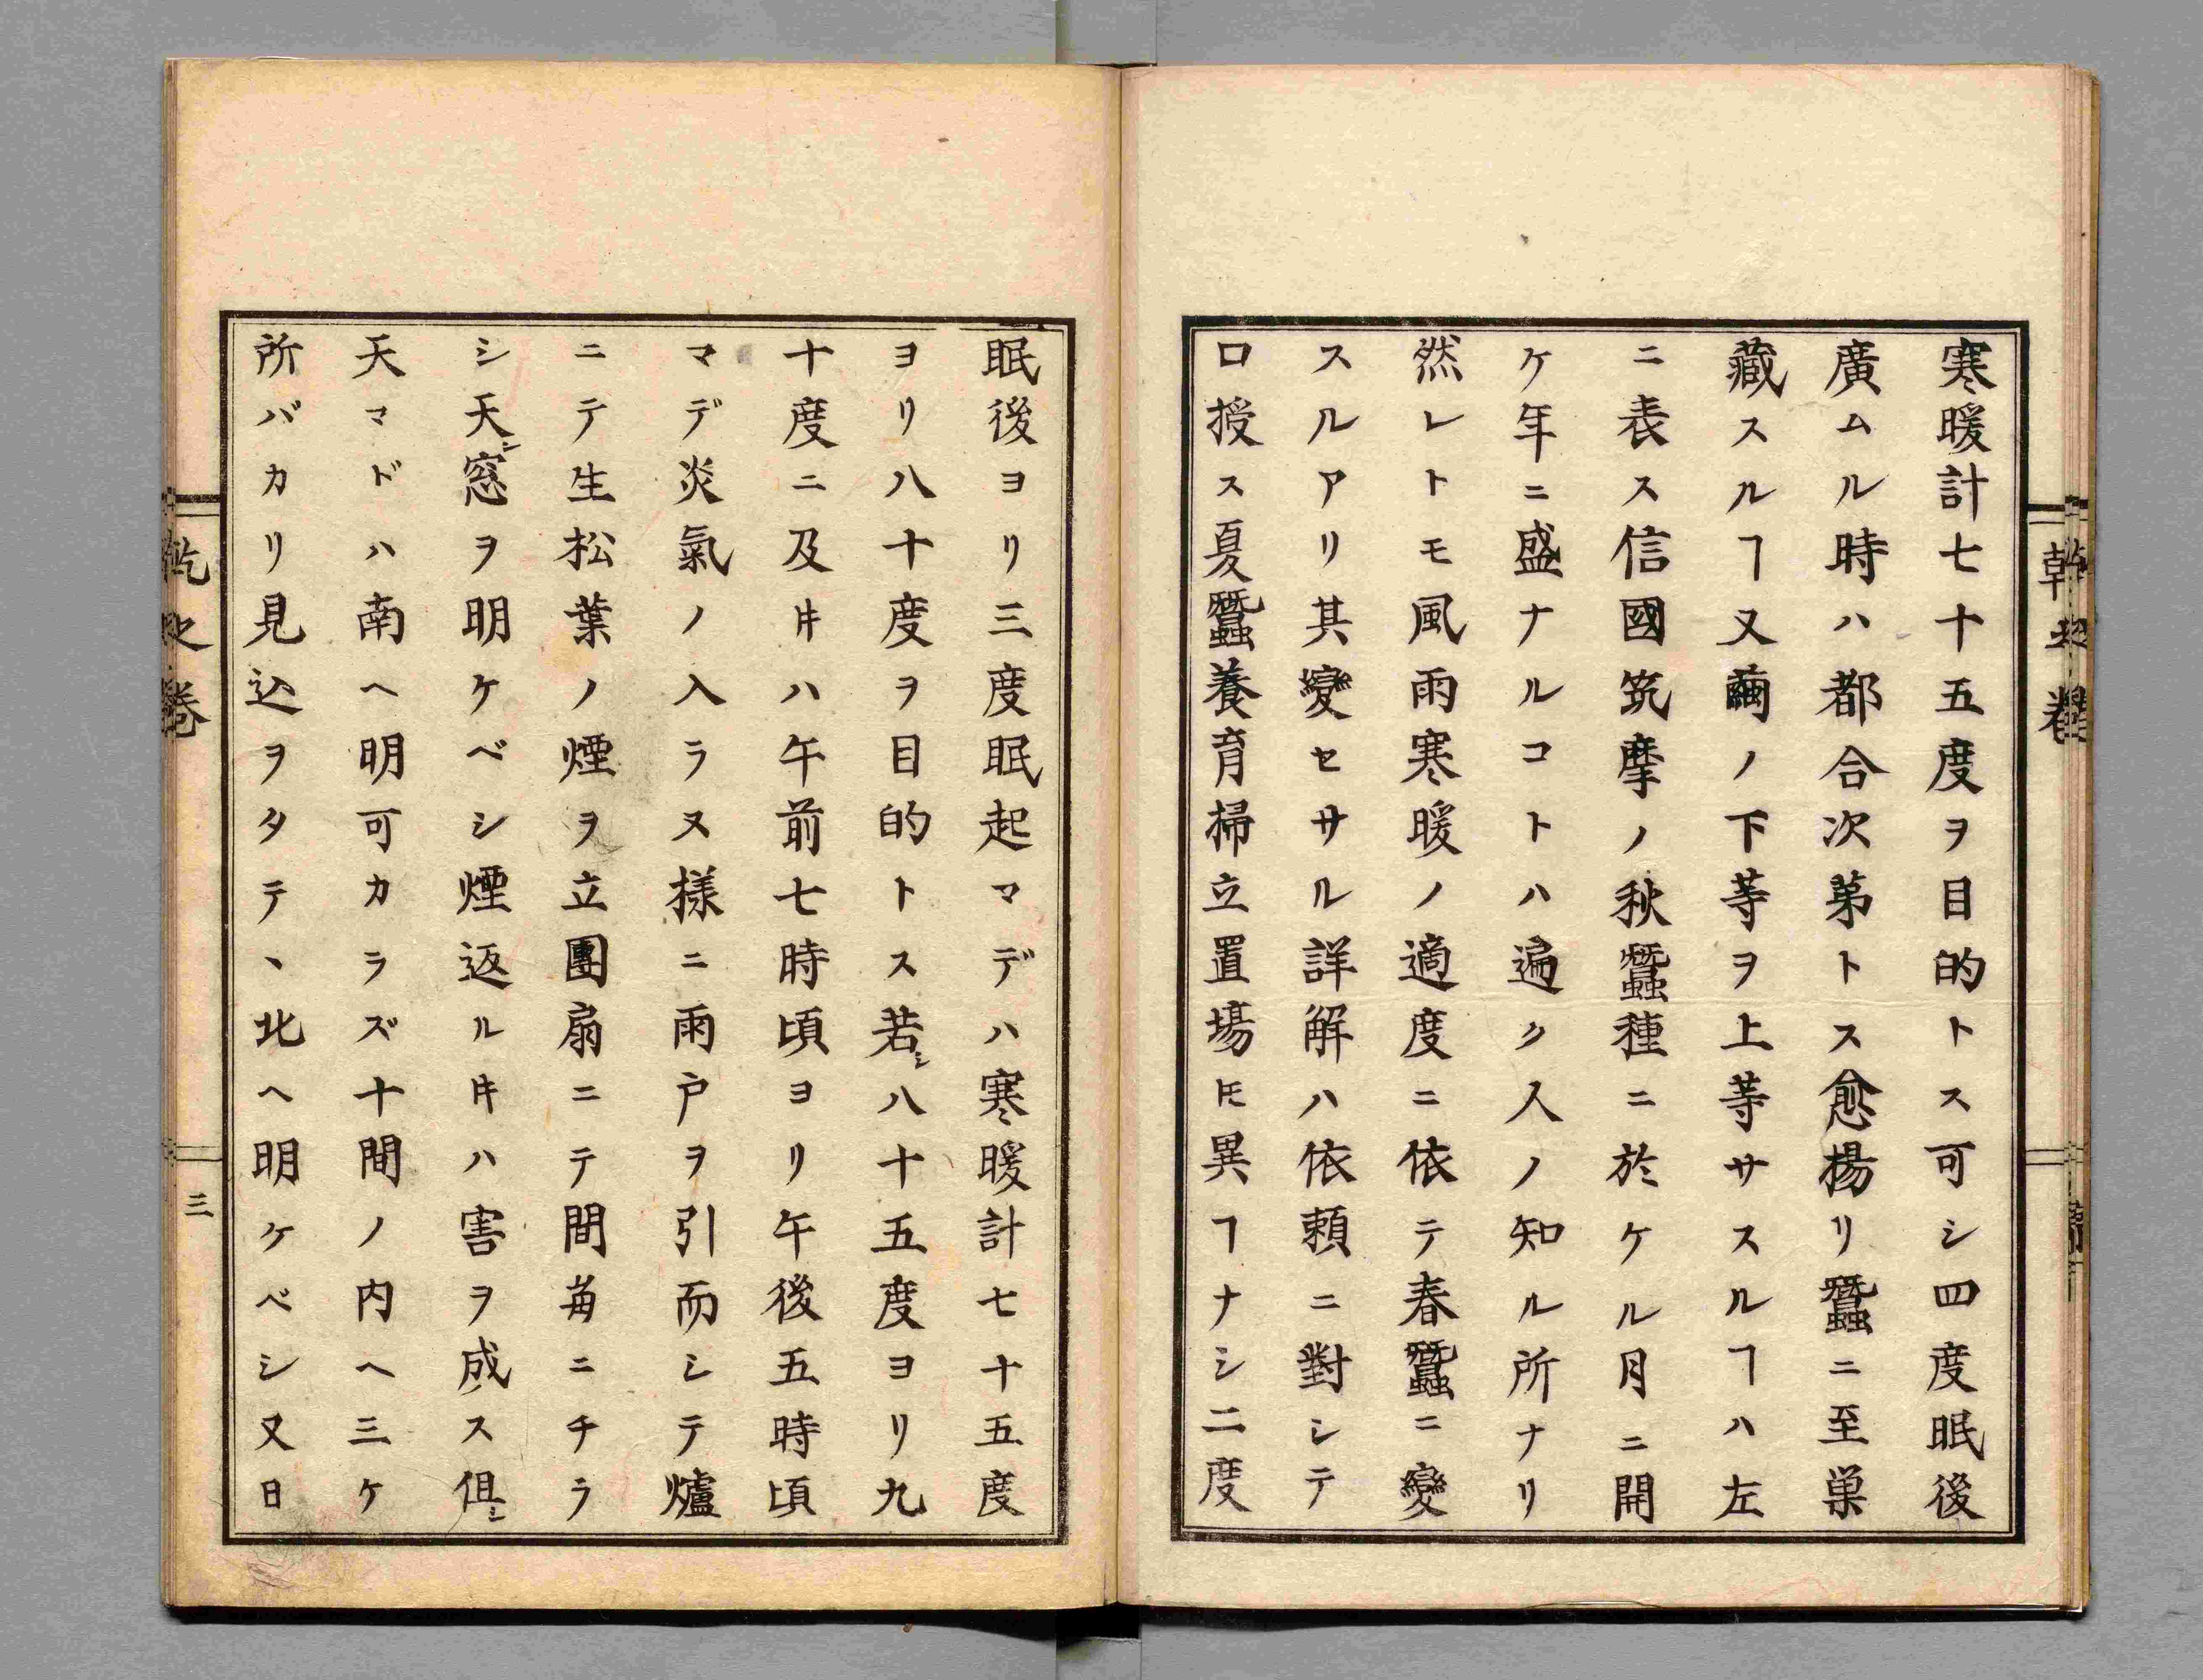 寒暖計七十五度ヲ目的トス可シ四度眠後
廣ムル時ハ都合次第トス愈揚リ蠶ニ至巣
藏スルヿ又繭ノ下等ヲ上等サスルヿハ左
ニ表ス信國筑摩ノ秋蠶種ニ於ケル月ニ開
ケ年ニ盛ナルコトハ遍ク人ノ知ル所ナリ
然レトモ風雨寒暖ノ適度ニ依テ春蠶ニ變
スルアリ其變セサル詳解ハ依頼ニ對シテ
口授ス夏蠶養育掃立置場𪜈異ヿナシ二度
眠後ヨリ三度眠起マデハ寒暖計七十五度
ヨリ八十度ヲ目的トス若シ八十五度ヨリ九
十度ニ及ㇳキハ午前七時頃ヨリ午後五時頃
マデ炎氣ノ入ラヌ樣ニ雨戸ヲ引而シテ爐
ニテ生松葉ノ煙ヲ立團扇ニテ間每ニチラ
シ天窓ヲ明ケベシ煙返ルㇳキハ害ヲ成ス俱シ
天マドハ南ヘ明可カラズ十間ノ内ヘ三ケ
所バカリ見込ヲタテヽ北ヘ明ケベシ又日
乾之巻
三